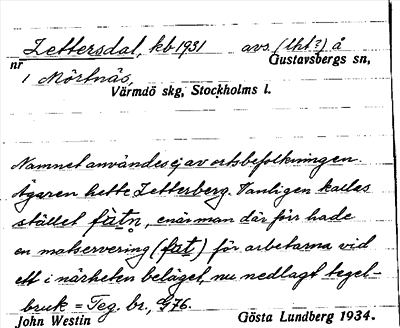 Zettersdal, kb 1931 avs. (lht?) å
nr Gustavsbergs sn,
1 Mörtnäs,
Värmdö skg, Stockholms l.
Namnet användes ej av ortsbefolkningen.
Ägaren hette Zetterberg. Vanligen kallas
stället fàtn, enär man där förr hade
en matservering (fat) för arbetarna vid
ett i närheten beläget, nu nedlagt tegel-
bruk = Teg. br., G76.
John Westin Gösta Lundberg 1934.